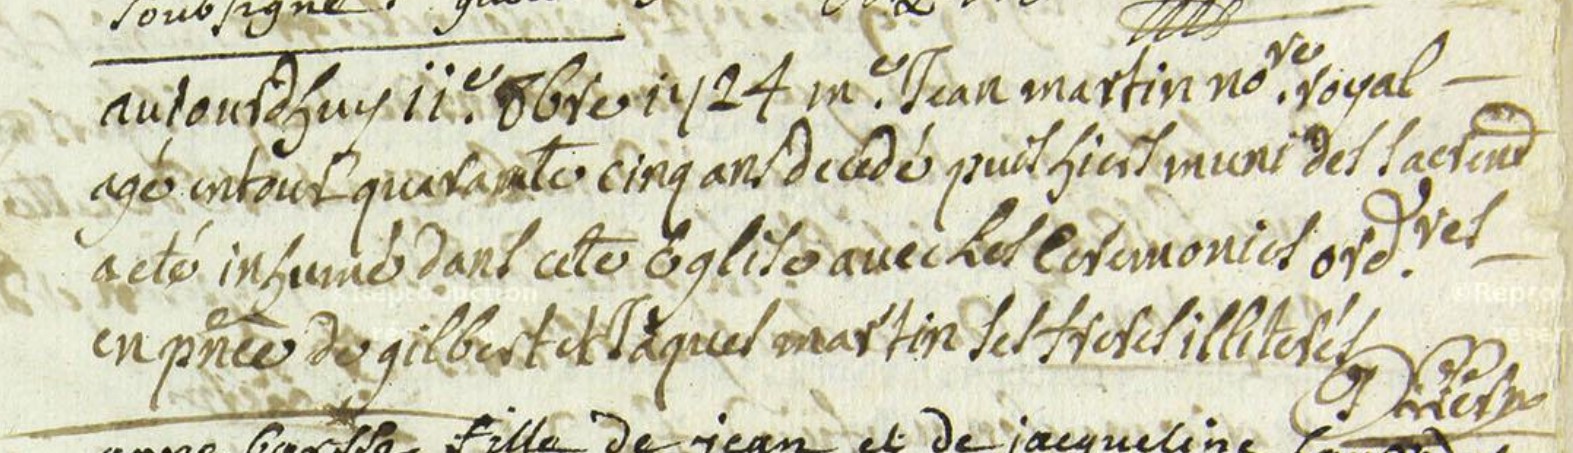 soubsigne
aujourdhuy 11.e 8bre 1724 m.e Jean martin no.re royal
agé entour quarante cinq ans decedé puis hiers muni des sacremd
a eté inhumé dans cete Eglise avec les Ceremonies ord.res
en pnce de gilbert et Jaques martin ses freres illiterés
fille de jean et de jacqueline